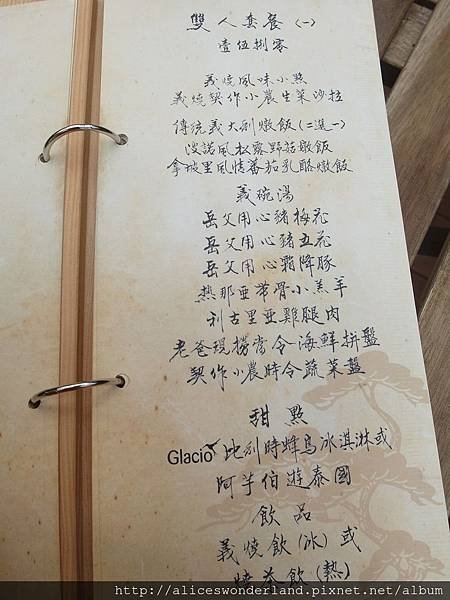 雙人套餐(一)
壹伍捌零
義燒風味小點
義燒契作小農生菜沙拉
傳統義大利燉飯(二選一)
波諾風松露野菇燉飯
拿坡里風情蕃茄乳酪燉飯
義碗湯
岳父用心豬梅花
岳父用心豬五花
岳父用心霜降豚
熱那亞帶骨小羔羊
利古里亞雞腿肉
老爸現撈當令海鮮拼盤
契作小農時令蔬菜盤
甜點
Glacio比利時蜂鳥冰淇淋或
阿芋伯遊泰國
飲品
義燒飲(冰)或
燒茶飲(熱)
http://aliceswonderland.pixnet.net/album